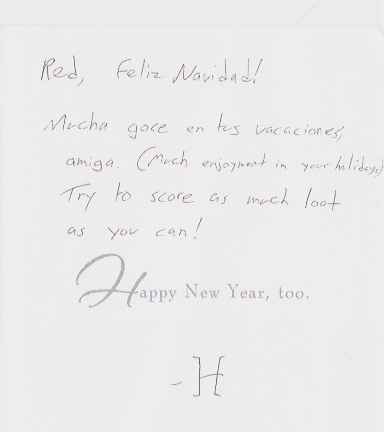 Red, Feliz Navidad!
Mucha goce en tus vacaciones,
amiga. (Much enjoyment in your holidays)
Try to score as much loot
as you can!
Happy New Year, too.
- H